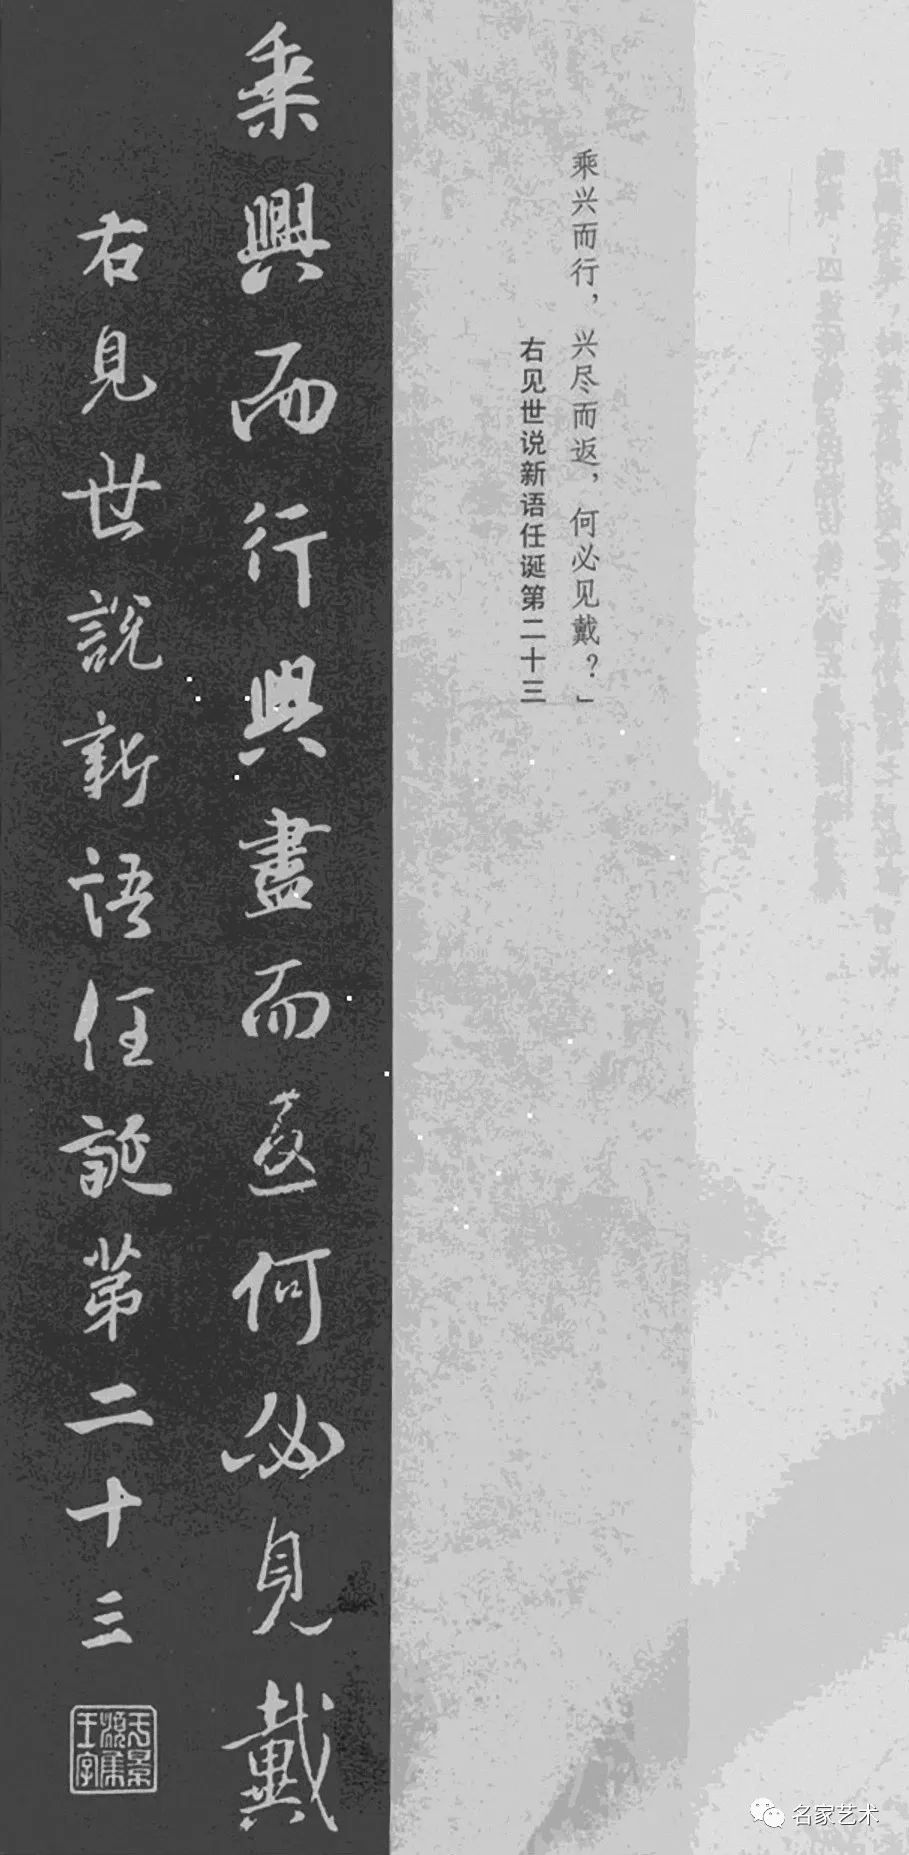 乘兴而行，兴尽而返，何必见戴？」
右见世说新语任诞第二十三
乘興而行興盡而返何必見戴
右見世說新語任誕第二十三
名家艺术